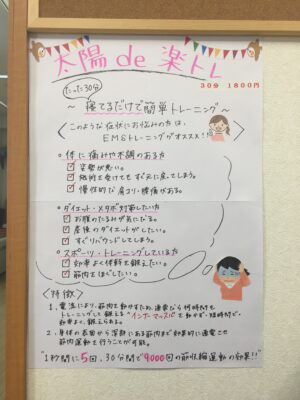 太陽 de 楽トレ
たった30分
30分 1800円
〜寝てるだけで簡単トレーニング〜
このような症状にお悩みの方は、
EMSトレーニングがオススメ!!
体に痛みや不調のある方
姿勢が悪い。
施術を受けてもすぐ元に戻ってしまう。
慢性的な肩コリ・腰痛がある。
ダイエット・メタボ対策したい方
お腹のたるみが気になる。
産後のダイエットがしたい。
すぐリバウンドしてしまう。
スポーツ・トレーニングしている方
効率よく体幹を鍛えたい。
筋肉をほぐしたい。
〈特徴〉
1、電流により、筋肉を動かすため、通常なら何時間も
トレーニングして鍛える"インナーマッスル"を動かす。短時間で、
効率よく鍛えられる。
2、身体の表面から深部にある筋肉まで効果的に通電させ
筋肉運動を行うことが可能。
"1秒間に5回、30分間で9000回の筋収縮運動の効果!!"